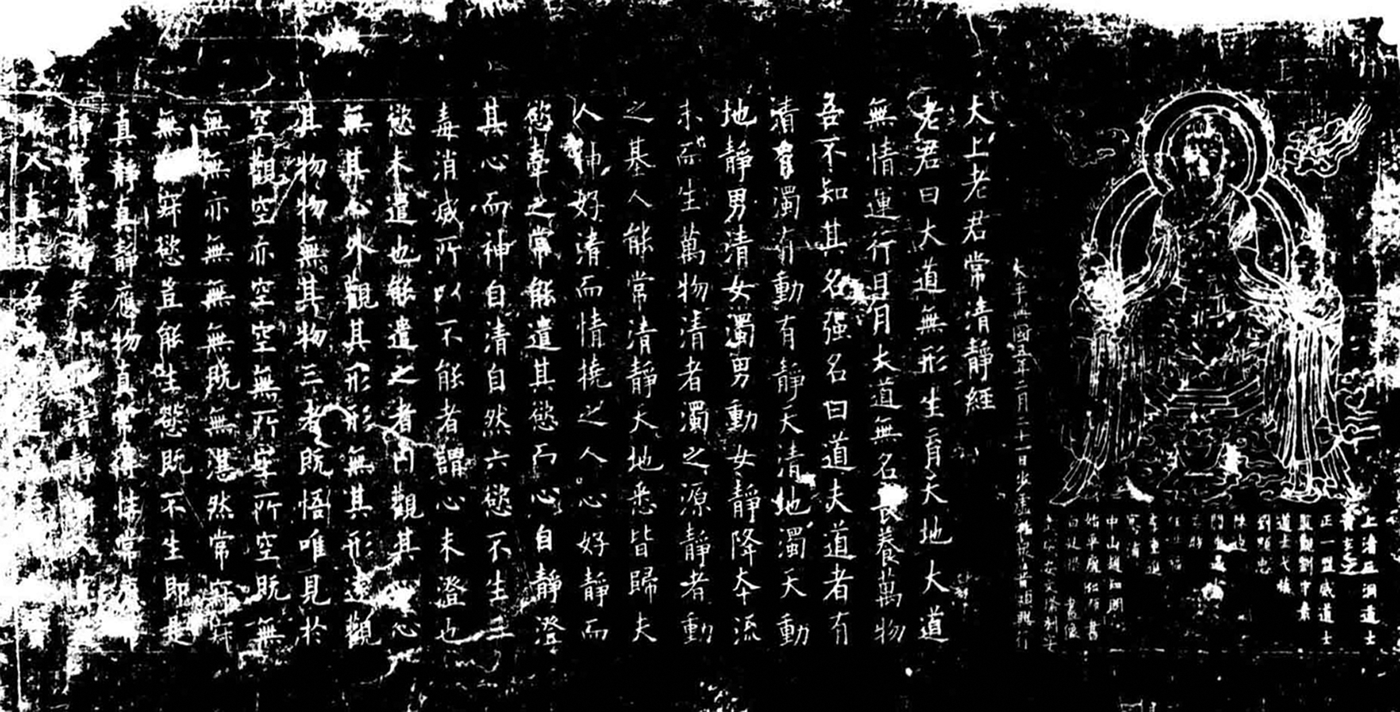 上清三洞道士
正一盟威道士
太平興國五年二月二十一日
太上老君常清靜經
老君曰大道無形生育天地大道
無情運行日月大道無名長養萬物
吾不知其名强名曰道夫道者有
清有濁有動有靜天清地濁天動
地靜男清女濁男動女靜降夲流
末而生萬物清者濁之源靜者動
之基人能常清靜天地悉皆歸夫
人神好清而情撓之人心好靜而
慾牽之常能遣其慾而心自靜澄
其心而神自清自然六慾不生三
毒消滅所以不能者謂心未澄也
慾未遣也能遣之者内觀其心心
無其心外觀其形形無其形遠觀
其物物無其物三者既悟唯見於
空觀空亦空空無所空所空既無
無無亦無無無既無湛然常寂寂
無寂慾豈能生慾既不生即是
真靜真靜應物真常得性常應
靜常清靜矣如此清靜
入真道名